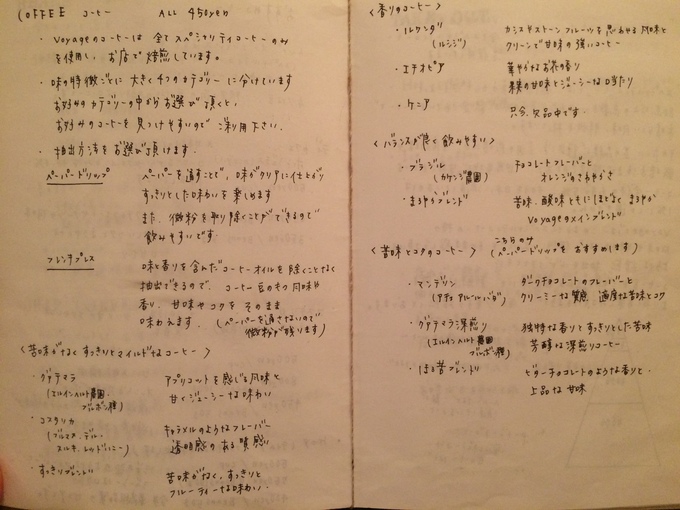 COFFEE コーヒー ALL 450yen
・voyageのコーヒーは 全て スペシャリティコーヒーのみ
を使用し、お店で 焙煎しています。
・味の特徴ごとに 大きく4つのカテゴリーに分けています
お好みのカテゴリーの中からお選び頂くと、
お好みのコーヒーを見つけやすいので ご利用下さい。
・抽出方法をお選び頂けます。
ペーパードリップ ペーパーを通すことで、味がクリアに仕上がり
すっきりとした味わいを楽しめます
また、微粉を取り除くことができるので
飲みやすいです
フレンチプレス 味と香りを含んだコーヒーオイルを除くことなく
抽出できるので、コーヒー豆のもつ風味や
香り、甘味やコクをそのまま
味わえます。(ペーパーを通さないので
微粉が残ります)
〈苦味がなくすっきりとマイルドなコーヒー〉
・グァテマラ アプリコットを感じる風味と
(エルインヘルト農園・ 甘くジューシーな味わい
ブルボン種)
・コスタリカ キャラメルのようなフレーバー
(ブルマス・デル・ 透明感のある質感
スルキ・レッドハニー)
・すっきりブレンド 苦味がなく、すっきりと
フルーティーな味わい。
〈香りのコーヒー〉
・ルワンダ カシスやストーンフルーツを思わせる風味と
(ルシジ) クリーンで甘味の強いコーヒー
・エチオピア 華やかなお花の香り
果実の甘味とジューシーな口当たり
・ケニア 只今、欠品中です。
〈バランスが良く飲みやすい〉
・ブラジル チョコレートフレーバーと
(カケンジ農園) オレンジのさわやかさ
・まろやかブレンド 苦味、酸味ともにほどよく まろやか
voyageのメインブレンド
〈苦味とコクのコーヒー〉 こちらのみ
(ペーパードリップを おすすめします)
・マンデリン ダークチョコレートのフレーバーと
クリーミーな質感 適度な苦味とコク
・グァテマラ深煎り 独特な香りとすっきりとした苦味
(エルインヘルト農園 芳醇な深煎りコーヒー
ブルボン種)
・ほろ苦ブレンド ビターチョコレートのような香りと、
上品な甘味